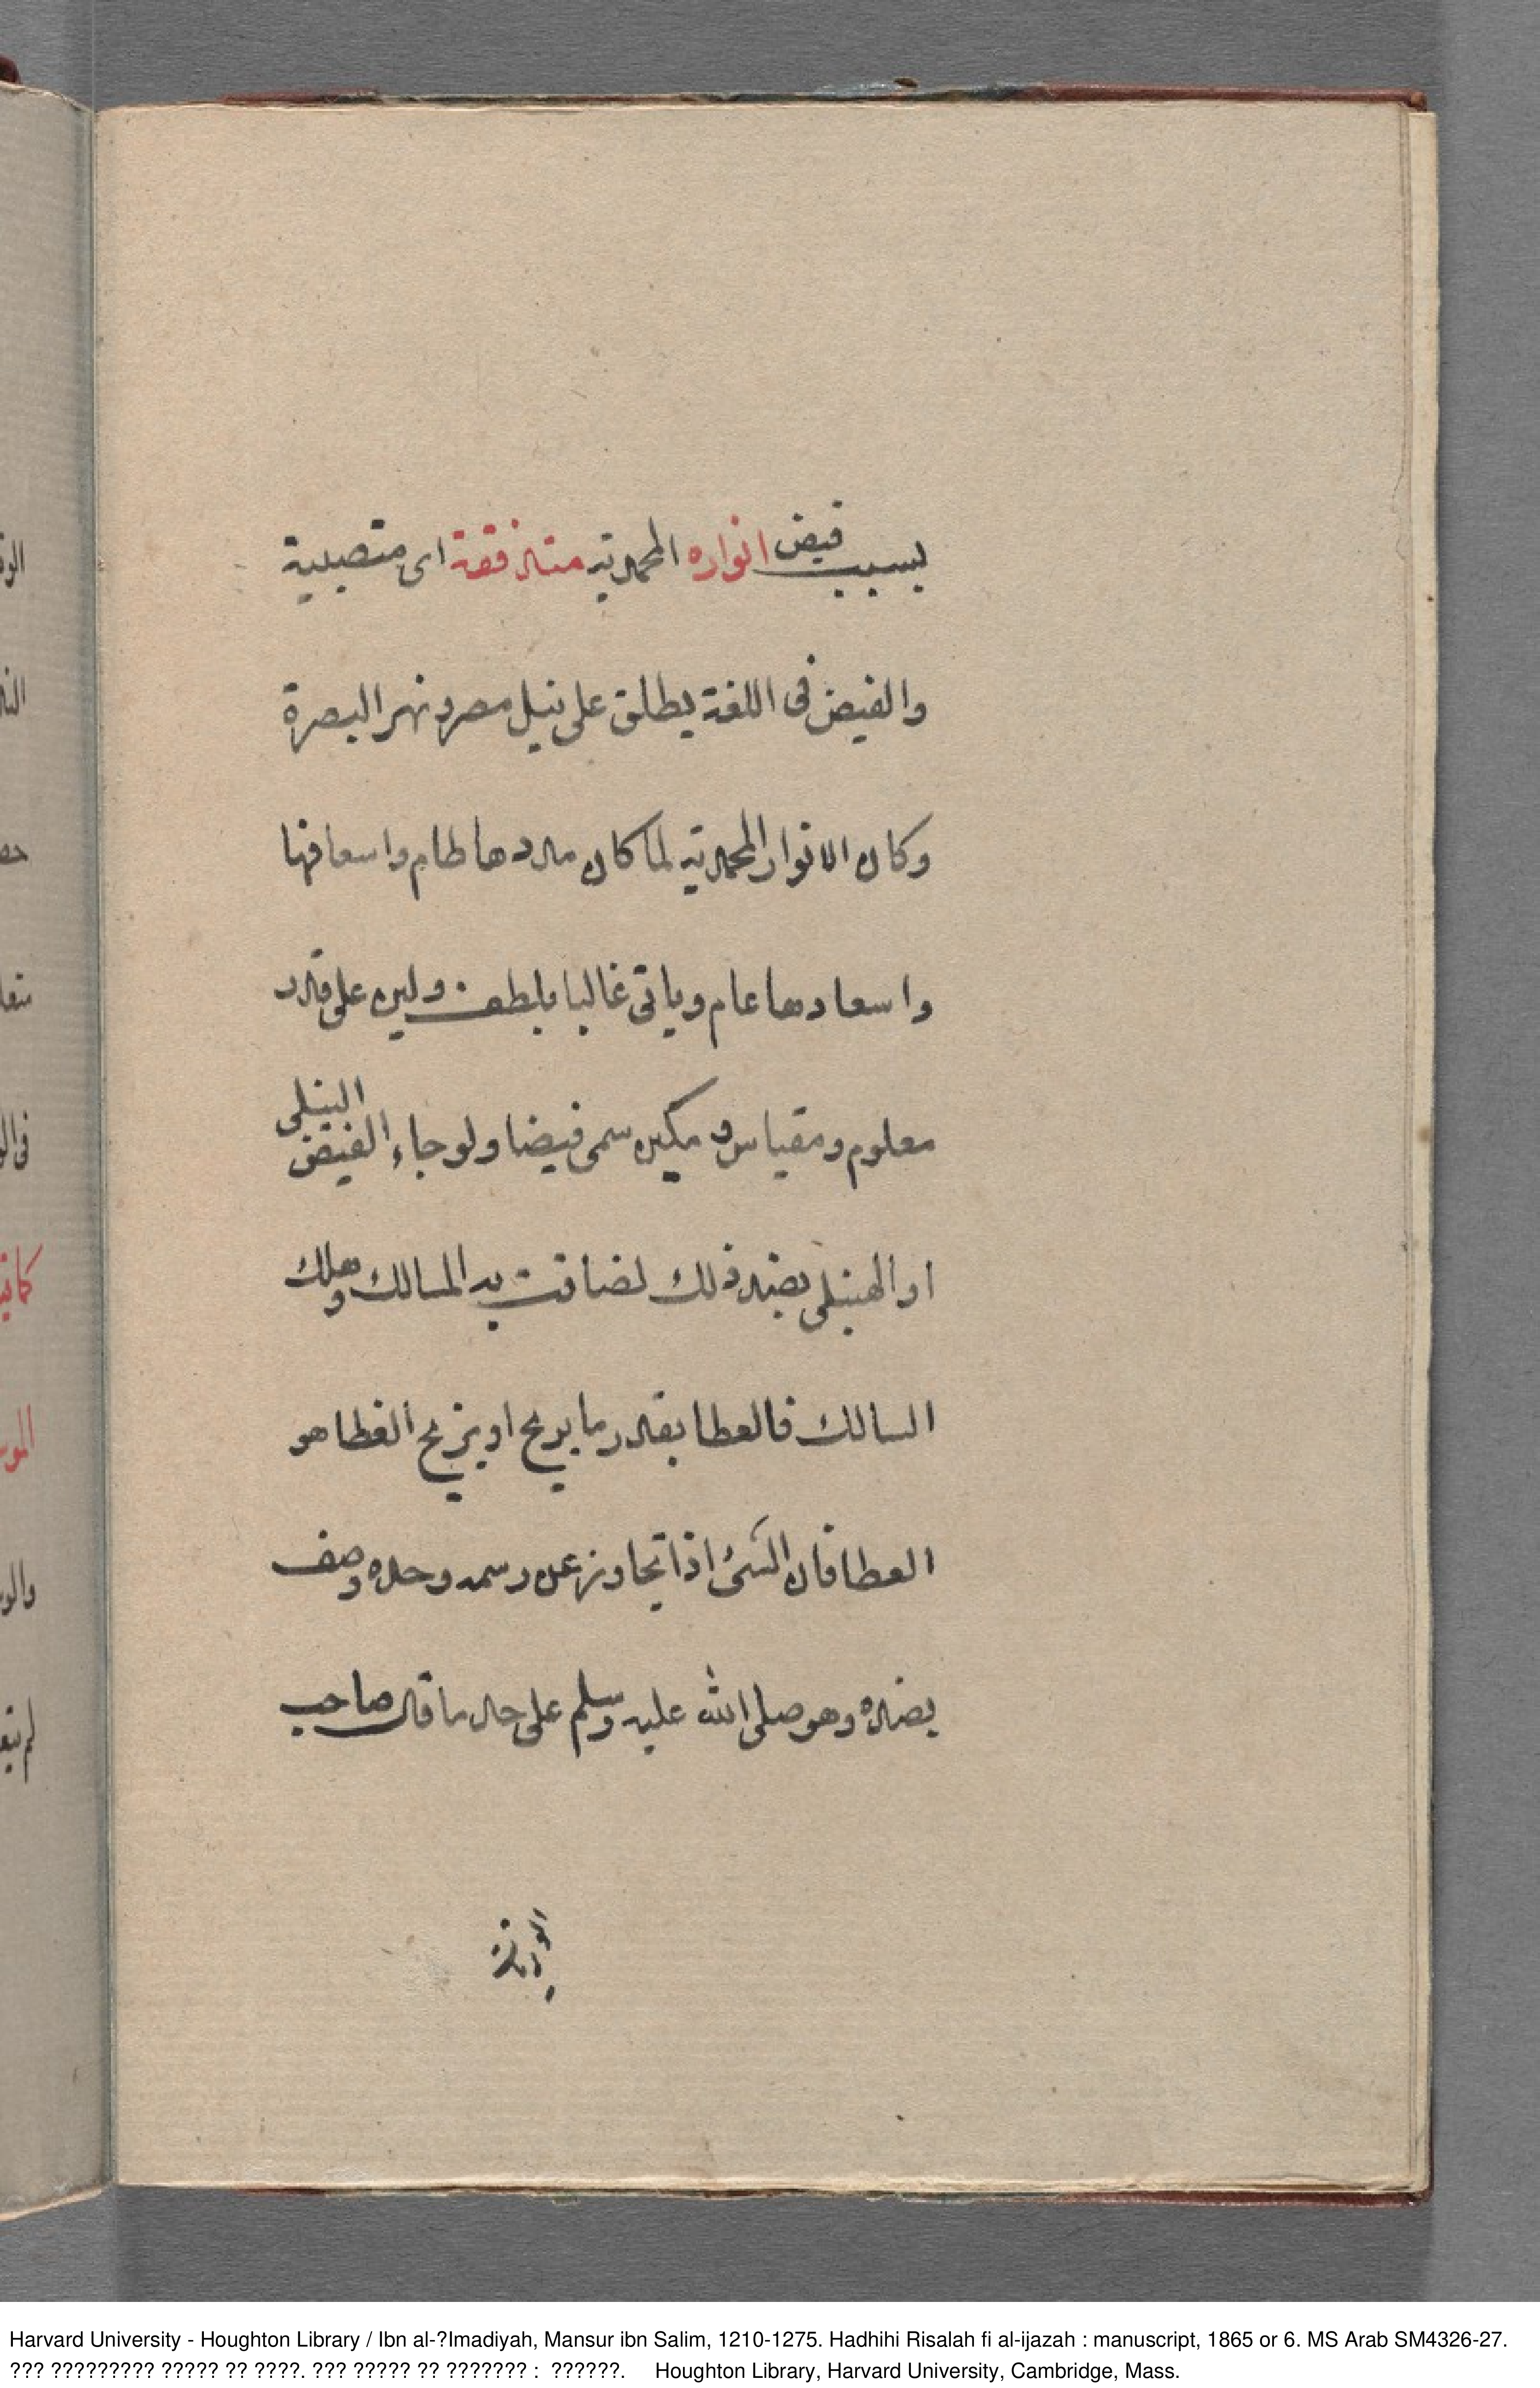 بسبب فيض انواره المحمدية متدفقة اى متصببة
والفيض فى اللغة يطلق على نيل مصر ونهر البصرة
وكان الانوار المحمدية لما كان مددها طام واسعافها
واسعادها عام وياتى غالبا بلطف ولين على قدر
معلوم ومقياس ومكين سمى فيضا ولو جاء الفيض النيلى
او الهيتلى بضد ذلك لضاقت به المسالك وهلك
السالك فالعطا بقدر ما يريح او يزيح الغطا هو
العطا فان الشئ اذا تجاوز عن رسمه وحده وصف
بضده وهو صلى الله عليه وسلم على حد ما قال صاحب
الوق
النا
حص
متعا
فى الو
كانت
المو
والو
لم يتع
Harvard University - Houghton Library / Ibn al-?Imadiyah, Mansur ibn Salim, 1210-1275. Hadhihi Risalah fi al-ijazah : manuscript, 1865 or 6. MS Arab SM4326-27.
??? ????????? ????? ?? ????. ??? ????? ?? ??????? : ??????. Houghton Library, Harvard University, Cambridge, Mass.